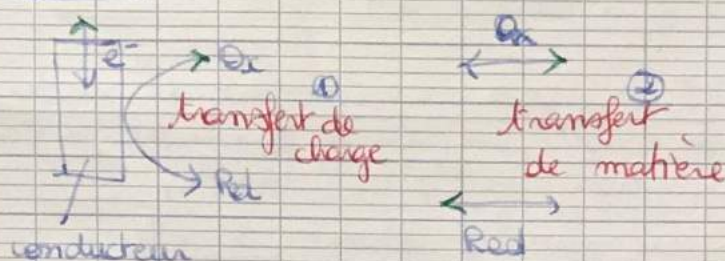 e⁻
Ox
①
transfert de
charge
Red
conducteur
Ox
②
transfert
de matière
Red